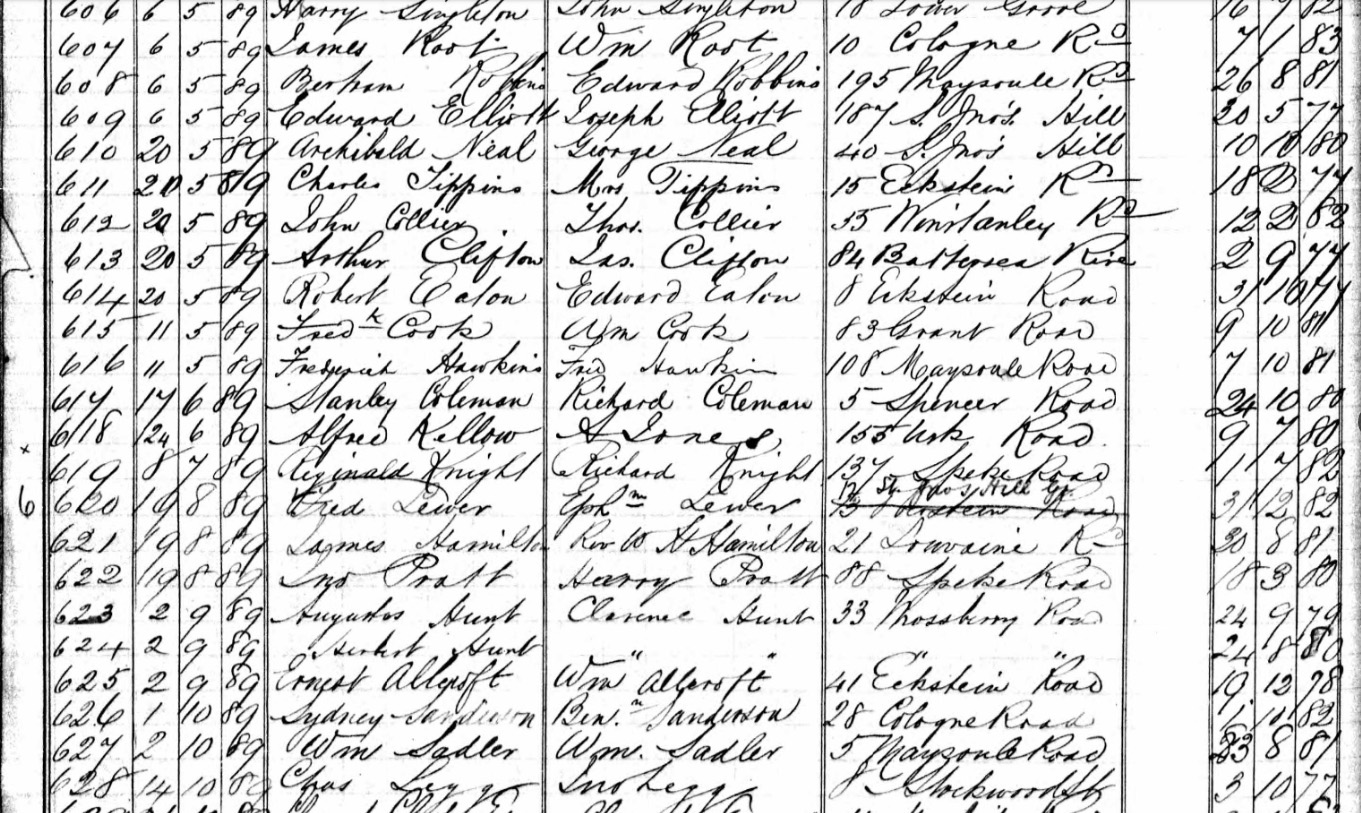 606 6 5 89 Harry Singleton John Singleton 18 Lower Grove 16 7 82
607 6 5 89 James Root Wm Root 10 Cologne Rd 7 1 83
608 6 5 89 Bertram Robbins Edward Robbins 195 Maysoule Rd 26 8 81
609 6 5 89 Edward Elliott Joseph Elliott 187 S. Jno's. Hill 30 5 77
610 20 5 89 Archibald Neal George Neal 40 S. Jno's Hill 10 10 80
611 20 5 89 Charles Tippins Mrs Tippins 15 Eckstein Rd 18 2 77
612 20 5 89 John Collier Thos. Collier 55 Winstanley Rd 12 2 82
613 20 5 89 Arthur Clifton Jas. Clifton 84 Battersea Rise 2 9 77
614 20 5 89 Robert Eaton Edward Eaton 8 Eckstein Road 31 10 77
615 11 5 89 Fredk Cook Wm Cook 83 Grant Road 9 10 81
616 11 5 89 Frederick Hawkins Fred Hawkins 108 Maysoule Road 7 10 81
617 17 6 89 Stanley Coleman Richard Coleman 5 Spencer Road 24 10 80
618 24 6 89 Alfred Kellow A Jones 155 Usk Road 9 7 80
x
619 8 7 89 Reginald Knight Richard Knight 137 Speke Road 11 7 82
St. Jno's Hill Gr.
6 620 19 8 89 Fred Lewer Ephm Lewer 13 Eckstein Road 31 12 82
621 19 8 89 James Hamilton Rev W H Hamilton 21 Louvaine Rd 30 8 81
622 19 8 89 Jno Pratt Harry Pratt 88 Speke Road 18 3 80
623 2 9 89 Augustus Hunt Clarence Hunt 33 Mossberry Road 24 9 79
624 2 9 89 Herbert Hunt " " " " 24 8 80
625 2 9 89 Ernest Allcroft Wm Allcroft 41 Eckstein Road 19 12 78
626 1 10 89 Sydney Sanderson Benn. Sanderson 28 Cologne Road 1 11 82
627 2 10 89 Wm Sadler Wm. Sadler 5 Maysoule Road 23 8 81
628 14 10 89 Chas Legg Jno Legg 8 Stockwood St 3 10 77